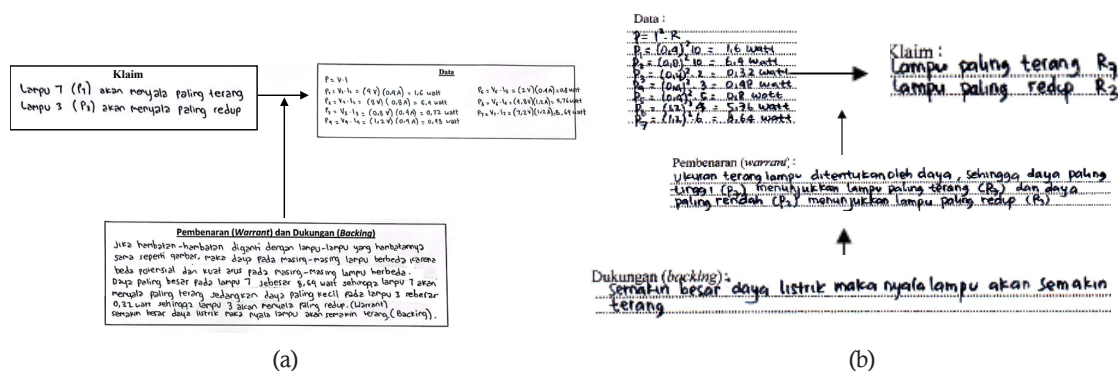 Klaim
Lampu 7 (P₇) akan menyala paling terang
Lampu 3 (P₃) akan menyala paling redup
Data
P = V.I
P₁ = V₁.I₁ = (4V)(0,4A) = 1,6 watt
P₂ = V₂.I₂ = (8V)(0,8A) = 6,4 watt
P₃ = V₃.I₃ = (0,8V)(0,4A) = 0,32 watt
P₄ = V₄.I₄ = (1,2V)(0,4A) = 0,48 watt
P₅ = V₅.I₅ = (2V)(0,4A) = 0,8 watt
P₆ = V₆.I₆ = (4,8V)(1,2A) = 5,76 watt
P₇ = V₇.I₇ = (7,2V)(1,2A) = 8,64 watt
Pembenaran (Warrant) dan Dukungan (Backing)
Jika hambatan-hambatan diganti dengan lampu-lampu yang hambatannya
sama seperti gambar, maka daya pada masing-masing lampu berbeda karena
beda potensial dan kuat arus pada masing-masing lampu berbeda.
Daya paling besar pada lampu 7 sebesar 8,64 watt sehingga lampu 7 akan
menyala paling terang sedangkan daya paling kecil pada lampu 3 sebesar
0,32 watt sehingga lampu 3 akan menyala paling redup. (Warrant)
semakin besar daya listrik maka nyala lampu akan semakin terang. (Backing).
(a)
Data :
P = I². R
P₁ = (0,4)² 10 = 1,6 watt
P₂ = (0,8)² 10 = 6,4 watt
P₃ = (0,4)² 2 = 0,32 watt
P₄ = (0,4)² 3 = 0,48 watt
P₅ = (0,4)² 5 = 0,8 watt
P₆ = (1,2)² 4 = 5,76 watt
P₇ = (1,2)² 6 = 8,64 watt
Klaim :
Lampu paling terang R₇
Lampu paling redup R₃
Pembenaran (warrant) :
Ukuran terang lampu ditentukan oleh daya, sehingga daya paling
tinggi (P₇) menunjukkan lampu paling terang (R₇) dan daya
paling rendah (P₃) menunjukkan lampu paling redup (R₃)
Dukungan (backing) :
Semakin besar daya listrik maka nyala lampu akan semakin
terang
(b)